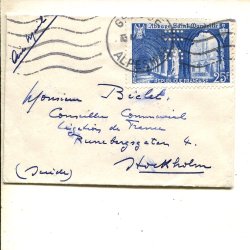 Abbaye Saint-Wandrille
REPUBLIQUE FRANCAISE
25F
ALPES
Monsieur Biclet,
Conseiller Commercial
Légation de France
Runebergsgatan 4.
Stockholm
(Suède)